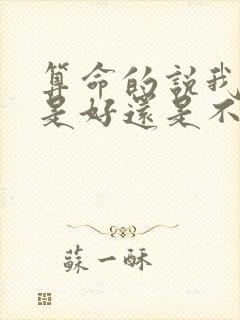 算命的説我
是好還是不
蘇一酥